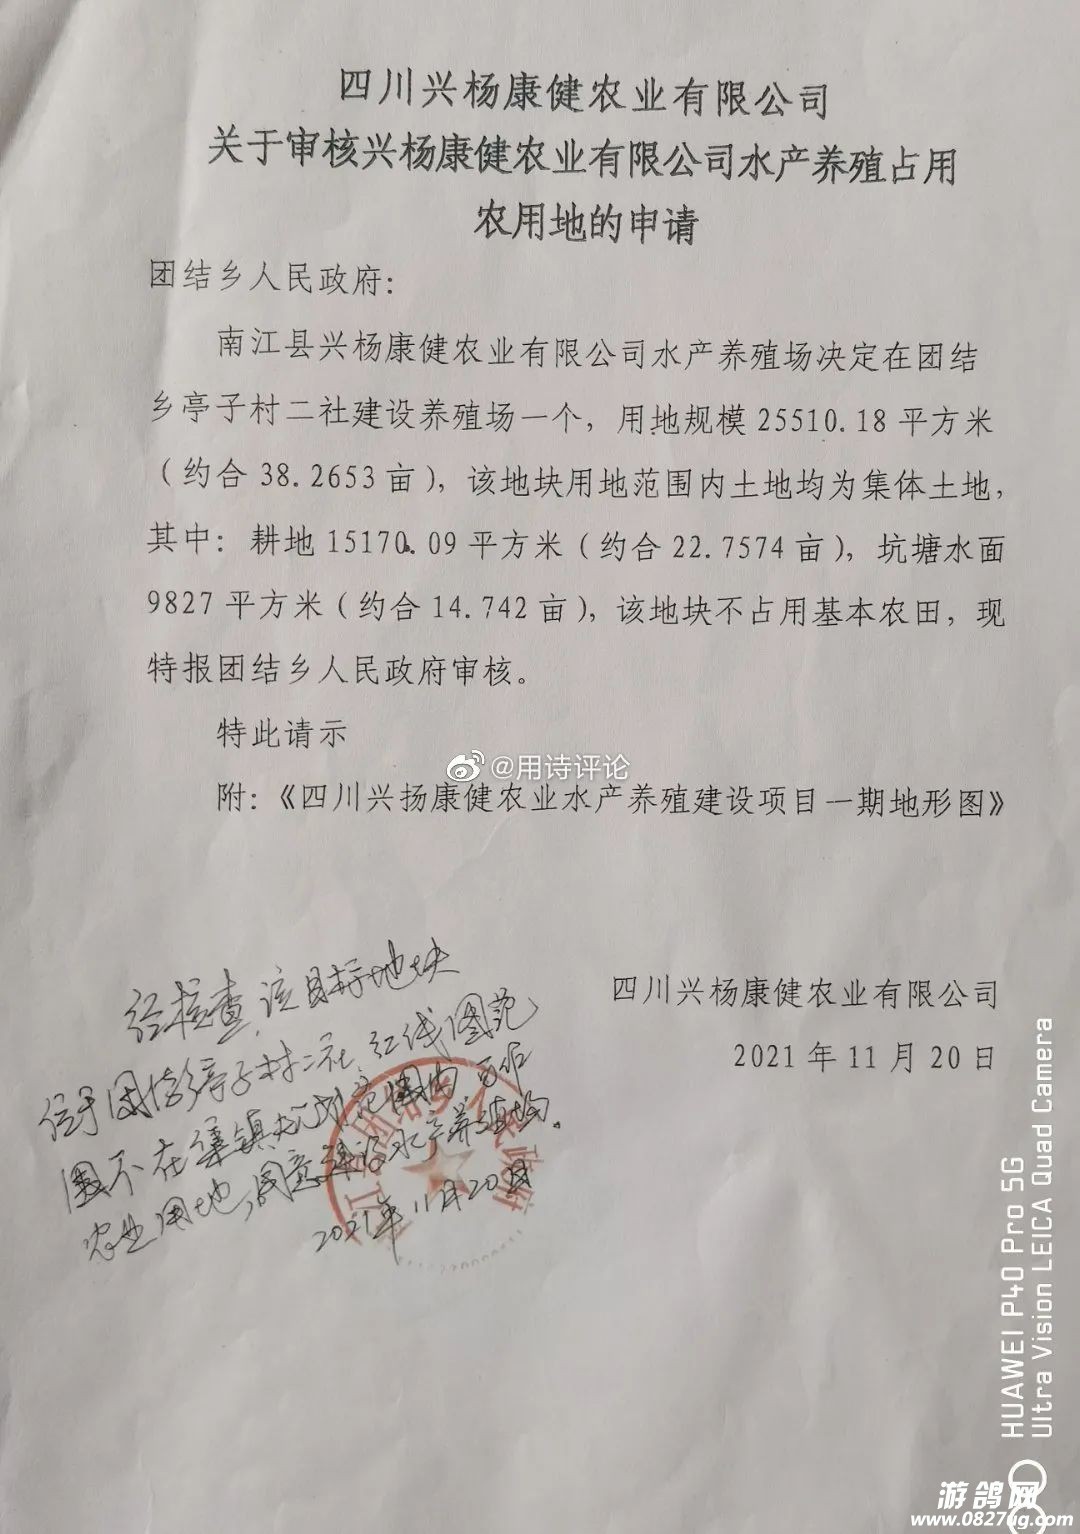 四川兴杨康健农业有限公司
关于审核兴杨康健农业有限公司水产养殖占用
农用地的申请
团结乡人民政府：
南江县兴杨康健农业有限公司水产养殖场决定在团结
乡亭子村二社建设养殖场一个，用地规模25510.18平方米
（约合38.2653亩），该地块用地范围内土地均为集体土地，
其中：耕地15170.09平方米（约合22.7574亩），坑塘水面
9827平方米（约合14.742亩），该地块不占用基本农田，现
特报团结乡人民政府审核。
特此请示
@用诗评论
附：《四川兴扬康健农业水产养殖建设项目一期地形图》
四川兴杨康健农业有限公司
2021年11月20日
经核查，该目标地块
位于团结乡亭子村二社，红线图范
围不在集镇规划范围内
农业用地，同意建设水产养殖场。
2021年11月20日
HUAWEI P40 Pro 5G
Ultra Vision LEICA Quad Camera
游鸽网
www.0827ug.com